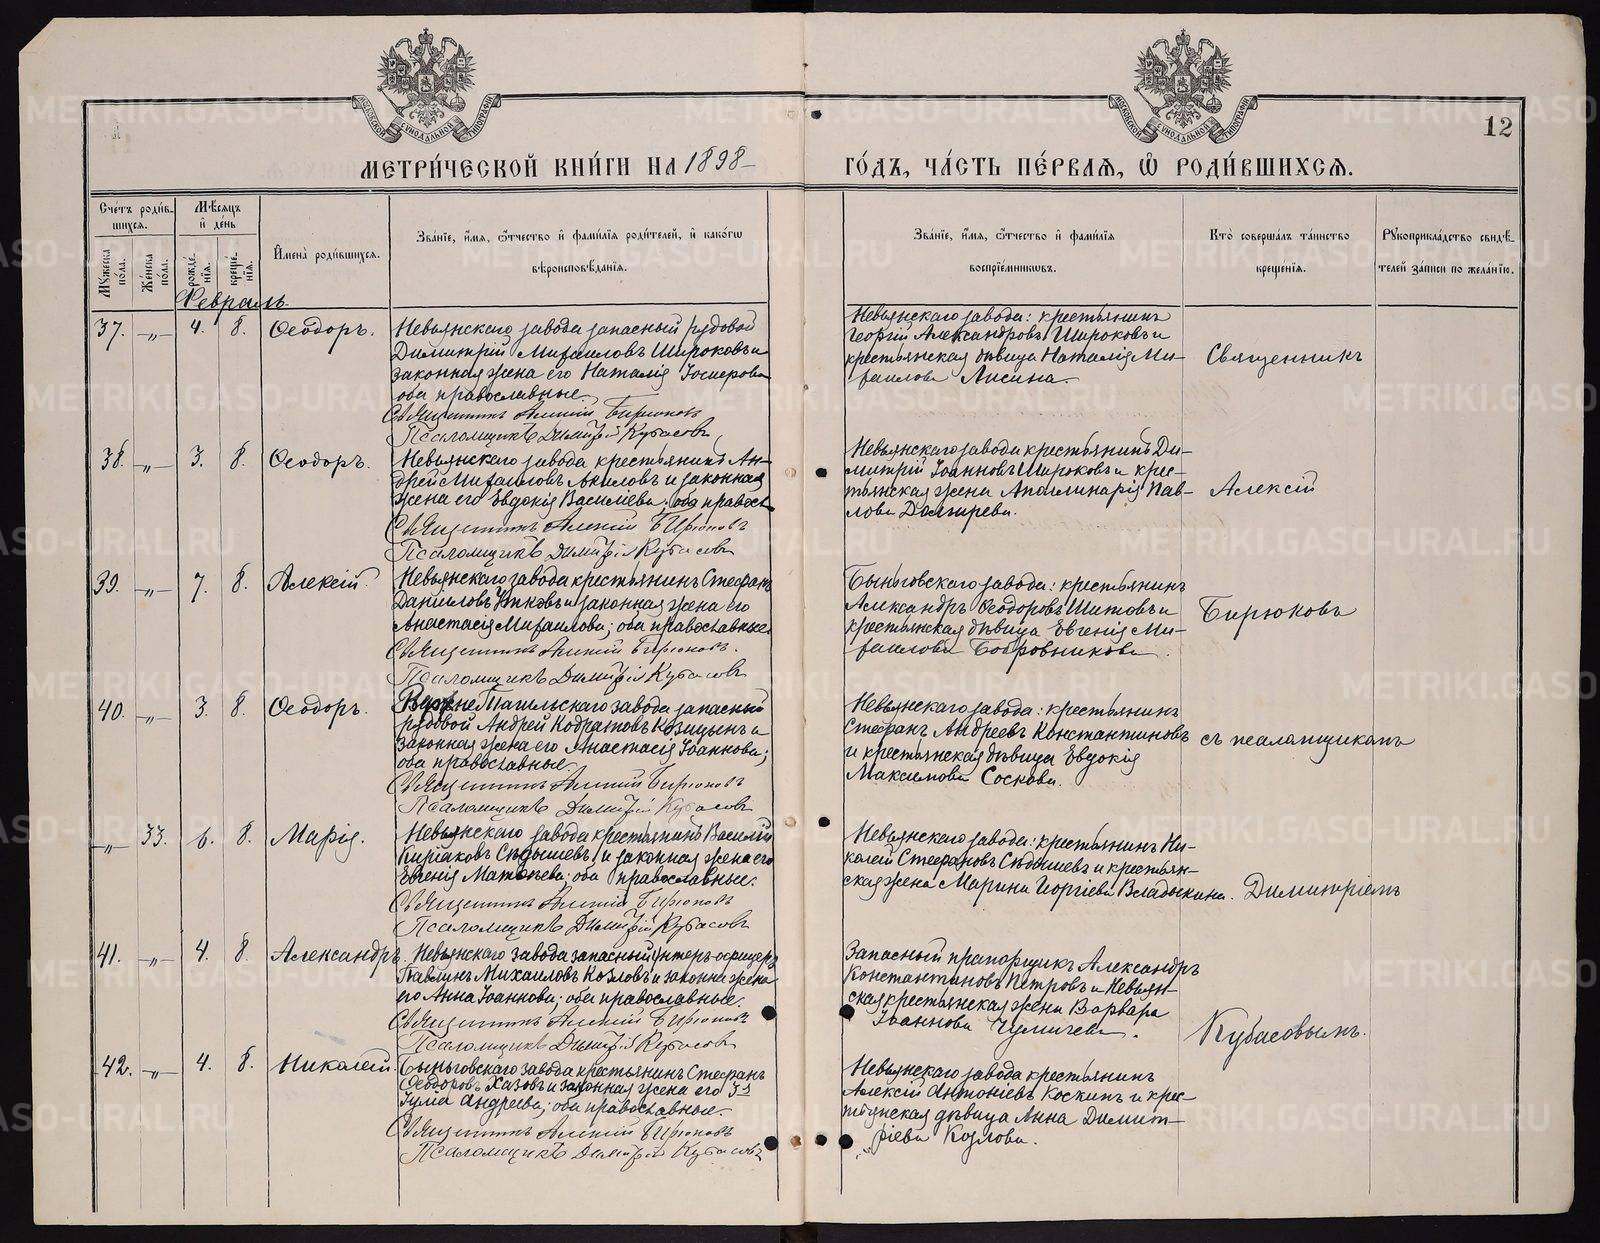 12
МЕТРИ́ЧЕСКОЙ КНИ́ГИ НА 1898
ГО́ДЪ, ЧА́СТЬ ПЕ́РВАѦ, Ѽ РОДИ́ВШИХСѦ.
Сче́тъ роди́в-
шихсѧ.
Мꙋжеска по́ла.
Же́нска по́ла.
Мѣ́сѧцъ и҆ де́нь
рожде́-
нїѧ.
креще́-
нїѧ.
И҆мена̀ роди́вшихсѧ.
Зва́нїе, и҆́мѧ, ѻ҆́тчество и҆ фами́лїѧ роди́телей, и҆ како́гѡ
вѣроисповѣ́данїѧ.
Зва́нїе, и҆́мѧ, ѻ҆́тчество и҆ фами́лїѧ
воспрїе́мникѡвъ.
Кто̀ соверша́лъ та́инство
креще́нїѧ.
Рꙋкоприкла́дство свидѣ́-
телей за́писи по жела́нїю.
Февраль
37. -"- 4. 8. Ѳеодоръ.
Невьянскаго завода запасный рядовой
Димитрій Михаиловъ Широковъ и
законная жена его Наталія
оба православные.
Священникъ Алексій Бирюковъ
Псаломщикъ Димитрій Кубасовъ
Невьянскаго завода: крестьянинъ
Георгій Александровъ Широковъ и
крестьянская дѣвица Наталія Ми-
хаилова Лисина.
Священникъ
38. -"- 3. 8. Ѳеодоръ.
Невьянскаго завода крестьянинъ Ан-
дрей Михаиловъ Акиловъ и законная
жена его Евдокія Василіева; оба правосл.
Священникъ Алексій Бирюковъ
Псаломщикъ Димитрій Кубасовъ
Невьянскаго завода крестьянинъ Ди-
митрій Іоанновъ Широковъ и крес-
тьянская жена Аполлинарія Пав-
лова
Алексій
39. -"- 7. 8. Алексій.
Невьянскаго завода крестьянинъ Стефанъ
Даніиловъ Утковъ и законная жена его
Анастасія Михаилова; оба православные.
Священникъ Алексій Бирюковъ.
Псаломщикъ Димитрій Кубасовъ
Быньговскаго завода: крестьянинъ
Александръ Ѳеодоровъ Шитовъ и
крестьянская дѣвица Евгенія Ми-
хаилова Бобровникова.
Бирюковъ
40. -"- 3. 8. Ѳеодоръ.
Верхне Тагильскаго завода запасный
рядовой Андрей Кодратовъ Козицынъ и
законная жена его Анастасія Іоаннова;
оба православные.
Священникъ Алексій Бирюковъ
Псаломщикъ Димитрій Кубасовъ
Невьянскаго завода: крестьянинъ
Стефанъ Андреевъ Константиновъ
и крестьянская дѣвица Евдокія
Максимова Соснова.
съ псаломщикомъ
-"- 33. 6. 8. Марія.
Невьянскаго завода крестьянинъ Василій
Киріаковъ Сѣдышевъ и законная жена его
Евгенія Матѳіева; оба православные.
Священникъ Алексій Бирюковъ
Псаломщикъ Димитрій Кубасовъ
Невьянскаго завода: крестьянинъ Ни-
колай Стефановъ Сѣдышевъ и крестьян-
ская жена Марина Георгіева Владыкина.
Димитріемъ
41. -"- 4. 8. Александръ.
Невьянскаго завода запасный унтеръ-офицеръ
Павлинъ Михаиловъ Козловъ и законная жена
его Анна Іоаннова; оба православные.
Священникъ Алексій Бирюковъ
Псаломщикъ Димитрій Кубасовъ
Запасный прапорщикъ Александръ
Константиновъ Петровъ и Невьян-
ская крестьянская жена Варвара
Іоаннова
Кубасовымъ.
42. -"- 4. 8. Николай
Быньговскаго завода крестьянинъ Стефанъ
Ѳеодоровъ Хазовъ и законная жена его
Іулія Андреева; оба православные.
Священникъ Алексій Бирюковъ
Псаломщикъ Димитрій Кубасовъ
Невьянскаго завода крестьянинъ
Алексій Антоніевъ Коскинъ и крес-
тьянская дѣвица Анна Димит-
ріева Козлова.